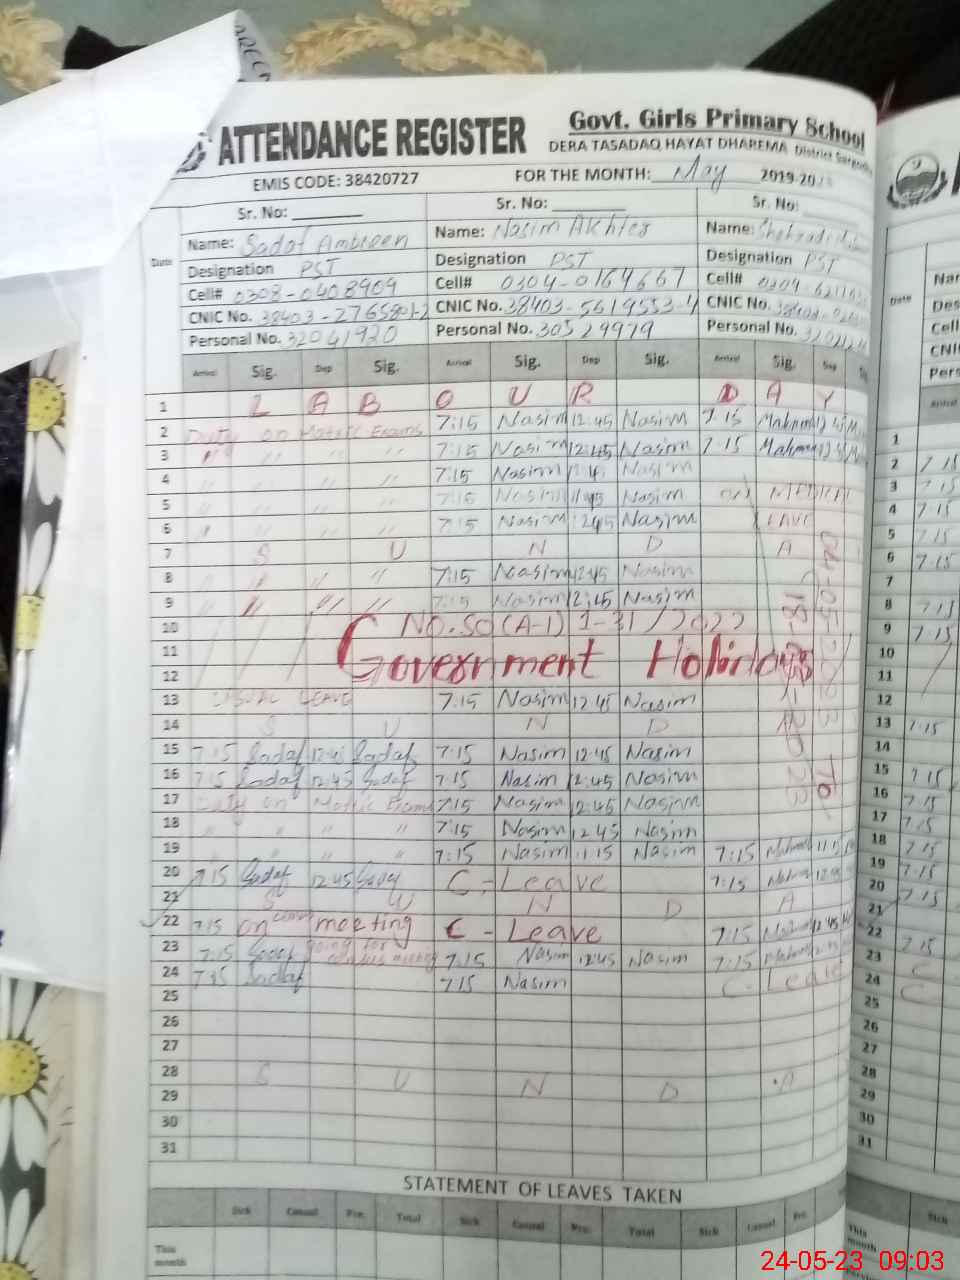 ATTENDANCE REGISTER
Govt. Girls Primary School
DERA TASADAQ HAYAT DHAREMA District
EMIS CODE: 38420727
FOR THE MONTH: May 2019-20
Sr. No: Sr. No: Sr. No:
Date
Name: Sadaf Ambreen Name: Nasim Akhter Name:
Designation PST Designation PST Designation PST
Cell# 0308-0408909 Cell# 0304-0164667 Cell#
CNIC No. 38403-2765801-2 CNIC No. 38403-5619553-4 CNIC No.
Personal No. 32041920 Personal No. 30529979 Personal No.
Arrival Sig. Dep Sig. Arrival Sig. Dep Sig. Arrival Sig. Dep
1 L A B O U R D A Y
2 Duty on Matric Exams 7:15 Nasim 12:45 Nasim 7:15
3 " " " " 7:15 Nasim 12:45 Nasim 7:15
4 " " " " 7:15 Nasim Nasim
5 " " " " 7:15 Nasim Nasim on MEDICAL
6 " " " " 7:15 Nasim 12:45 Nasim LEAVE
7 S U N D A
8 " " " 7:15 Nasim 12:45 Nasim
9 " " " " 7:15 Nasim 12:45 Nasim
10 NO.SO(A-I) 1-31/2022
11 Government Holidays
12
13 CASUAL LEAVE 7:15 Nasim 12:45 Nasim
14 S U N D
15 7:15 Sadaf 12:45 Sadaf 7:15 Nasim 12:45 Nasim
16 7:15 Sadaf 12:45 Sadaf 7:15 Nasim 12:45 Nasim
17 Duty on Matric Exams 7:15 Nasim 12:45 Nasim
18 " " " " 7:15 Nasim 12:45 Nasim
19 " " " " 7:15 Nasim 11:15 Nasim 7:15
20 7:15 Sadaf 12:45 Sadaf C-Leave 7:15
21 S U N D A
22 7:15 on meeting C-Leave 7:15 12:45
23 7:15 Sadaf going for 7:15 Nasim 12:45 Nasim 7:15
24 Sadaf 7:15 Nasim C-Leave
25
26
27
28 S U N D A
29
30
31
04-05-2023 TO
STATEMENT OF LEAVES TAKEN
Sick Casual Prv. Total Sick Casual Prv. Total Sick Casual Prv.
This month
Date
1
2 7:15
3 7:15
4 7:15
5 7:15
6 7:15
7
8 7:15
9 7:15
10
11
12
13 7:15
14
15 7:15
16 7:15
17 7:15
18 7:15
19 7:15
20 7:15
21
22 7:15
23 C
24 C
25
26
27
28
29
30
31
Sick
This month
24-05-23 09:03